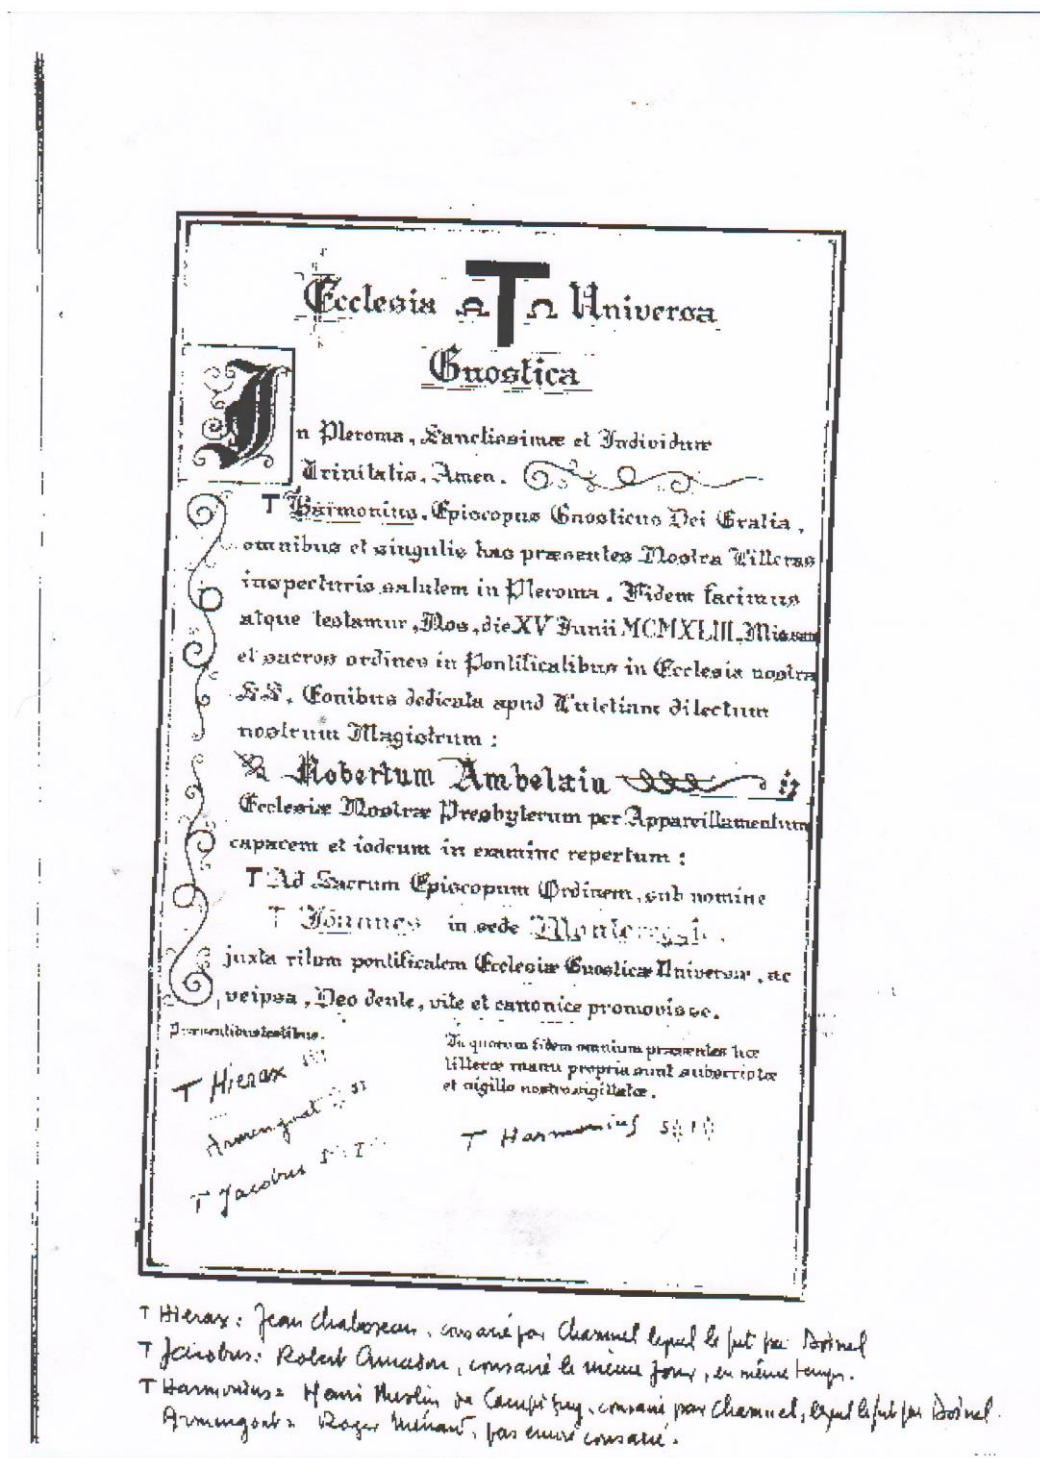 Ecclesia A T Ω Universa
Gnostica
In Pleroma, Sanctissimæ et Individuæ
Trinitatis. Amen.
T Harmonius, Episcopus Gnosticus Dei Gratia,
omnibus et singulis has præsentes Nostra Litteras
inspecturis salutem in Pleroma. Fidem facimus
atque testamur, Nos, die XV Junii MCMXLIII, Missam
et sacros ordines in Pontificalibus in Ecclesia nostra
SS. Eonibus dedicata apud Lutetiam dilectum
nostrum Magistrum :
Robertum Ambelain
Ecclesiæ Nostræ Presbyterum per Appareillamentum
capacem et in examine repertum :
T Ad Sacrum Episcopum Ordinem, sub nomine
T Iohannes in sede
juxta ritum pontificalem Ecclesiæ Gnosticæ Universæ, ac
reipsa, Deo dente, rite et canonice promovisse.
Præsentibus testibus.
T Hierax
Armengaut
T Jacobus
In quorum fidem omnium præsentes hæ
litteræ manu propria sunt subscriptæ
et sigillo nostro sigillatæ.
T Harmonius
T Hierax : Jean Chaboseau, consacré par Chamuel lequel le fut par Doinel
T Jacobus : Robert Amadou, consacré le même jour, en même temps.
T Harmonius = Henri Meslin de Campigny, consacré par Chamuel, lequel le fut par Doinel.
Armengaut = Roger Ménard, pas encore consacré.